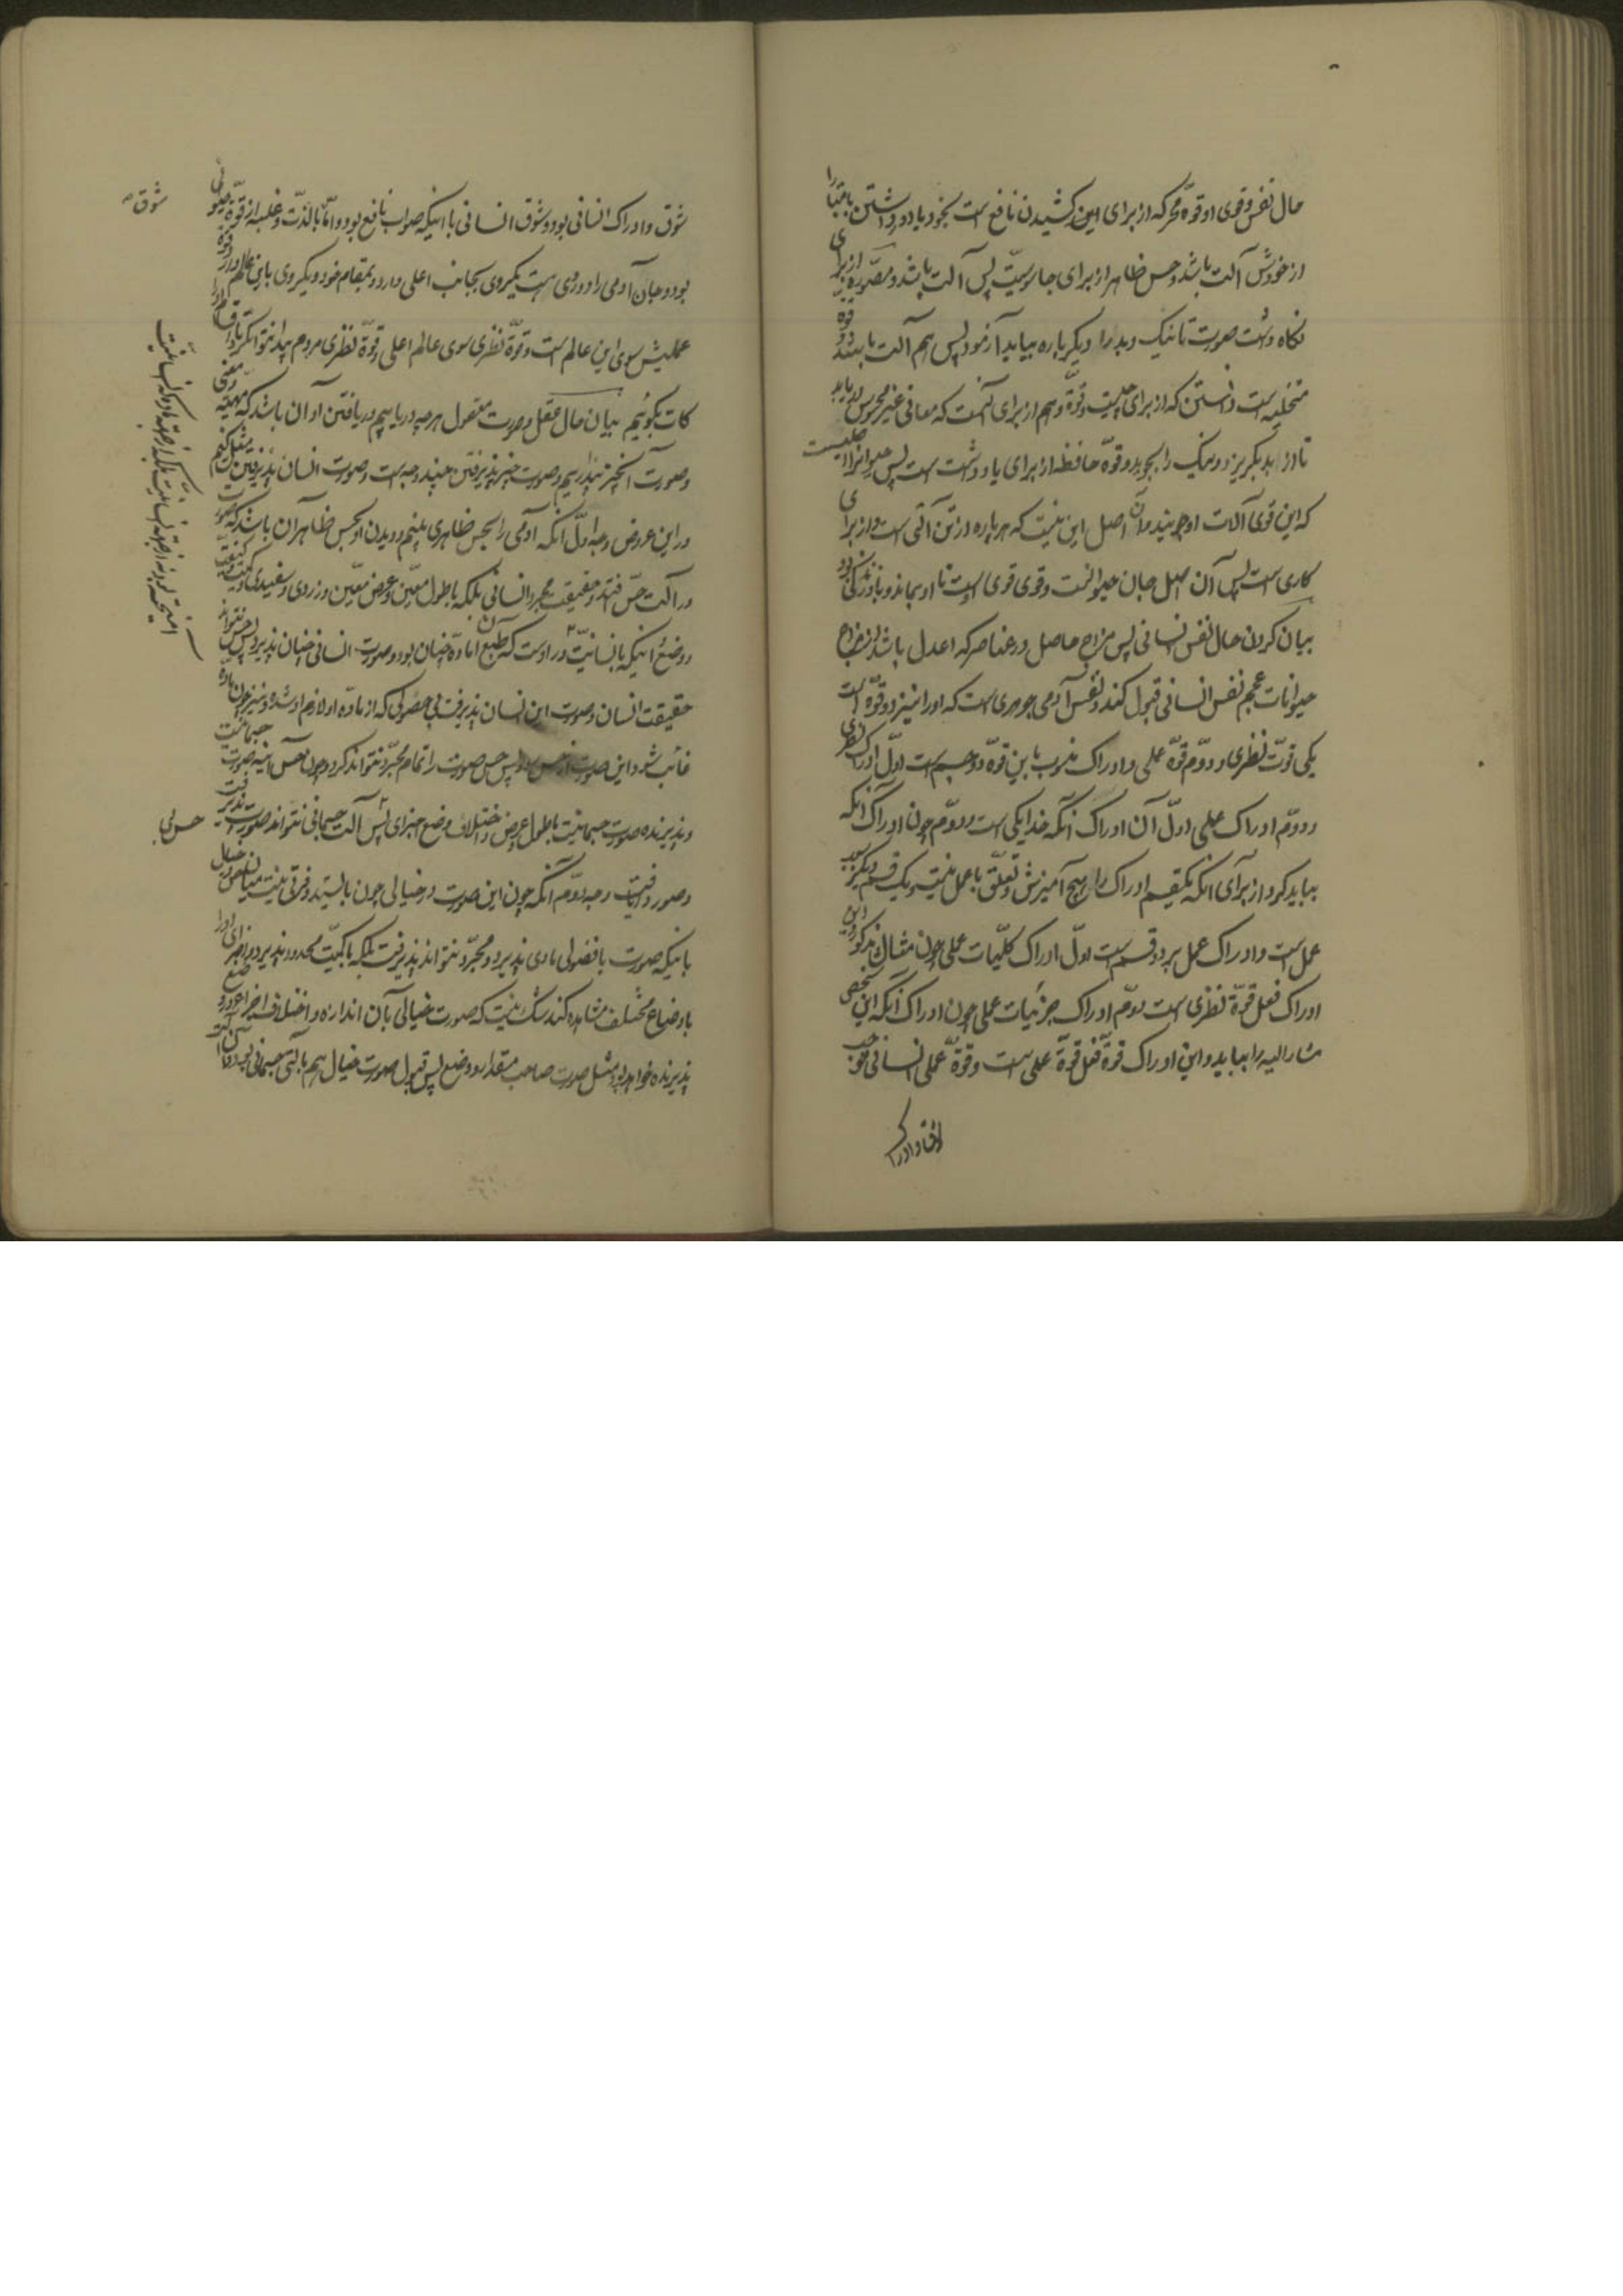 حال نفس و قوی او قوه محرکه از برای این کشیدن نافع است بخود یا دور داشتن
از خودش آلت باشد و حس ظاهر از برای جاسوسیت پس آلت باشد و مصوره از برای
نگاه داشت صورت تا نیک و بد را دیگر باره بیاید آزمود پس هم آلت باشد و قوه
متخیله است دانستن که از برای چیست و قوة وهم از برای آنست که معانی غیر محسوس دریابد
تا از بد بگریزد و نیک را بجوید و قوة حافظه از برای یاد داشت است پس حیوانرا اصلیست
که این قوی آلات او چونیند و آن اصل این نیست که هر پاره از تن آلتی است و از برای
کاری است پس آن اصل جان حیوانست و قوی قوی اوست تا او بماند و
بیان کردن حال نفس انسانی پس مزاج حاصل در عناصر که اعدل باشد از مزاج
حیوانات عجم نفس انسانی قبول کند و نفس آدمی جوهری است که او را نیز دو قوة است
یکی قوت نظری و دوم قوة عملی و ادراک منسوب باین قوة دو قسم است اول ادراک نظری
و دوم ادراک عملی اول آن ادراک آنکه خدا یکی است و دوم چون ادراک آنکه
بباید کرد از برای آنکه یکقسم ادراک را هیچ آمیزش و تعلق با عمل نیست و یک قسم دیگر
عمل است و ادراک عمل بر دو قسم است اول ادراک کلیات عملی چون مثال مذکور و این
ادراک فعل قوة نظری است دوم ادراک جزئیات عملی چون ادراک آنکه این شخص
مشار الیه را بیاید و این ادراک قوة فعل قوة عملی است و قوة عملی انسانی
شوق و ادراک انسانی بود و شوق انسانی با اینکه صواب نافع بود و اما بالذت و غلبه از قوة
بود و جان آدمی را دو روی است یکروی بجانب اعلی دارد و بمقام خود و یکروی باین عالم دارد و قوة
عملیش سوی این عالم است و قوة نظری سوی عالم اعلی و قوة نظری مردم
کات بگوئیم بیان حال عقل و صورت معقول هر چه دریابیم دریافتن او آن باشد که
و صورت آنچیز بپذیریم و صورت چیز پذیرفتن چند وجه است و صورت انسان پذیرفتن مثل کنیم
در این عروض وجه اول آنکه آدمی را بحس ظاهری بینیم و دیدن او بحس ظاهر آن باشد که صورت
در آلت حس و حقیقت مجرد انسانی بلکه با طول معین و عرض معین و زردی و سفیدی
و وضع اینکه بانسانیت در اوست که طبع آن ماده چنان بود و صورت انسانی چنان پذیرد پس حس نتواند
حقیقت انسان و صورت این انسان پذیرفت بی فضولی که از ماده او لازم او شده و نیز چون ماده
غائب شود این صورت از حس برود پس حس صورت را تمام مجرد نتواند کرد و چون جسمانیت
و پذیرنده صورت جسمانیت با طول و عرض و اختلاف وضع اجزای پس آلت جسمانی نتواند صورت پذیرفت
و صور دوم آنکه چون این صورت در خیالی چون بایستید و فرقی نیست میان حس و خیال
باینکه صورت با فضولی مادی پذیرد و مجرد نتواند پذیرفت بلکه با کمیت محدود پذیرد و اجزای او را
باوضاع مختلف مشاهده کند شک نیست که صورت خیالی با آن اندازه و اختلاف اجزا
پذیرنده خواهد بود مثل صورت صاحب مقدار و وضع پس قبول صورت خیال هم بآلتی جسمانی بود
شوق